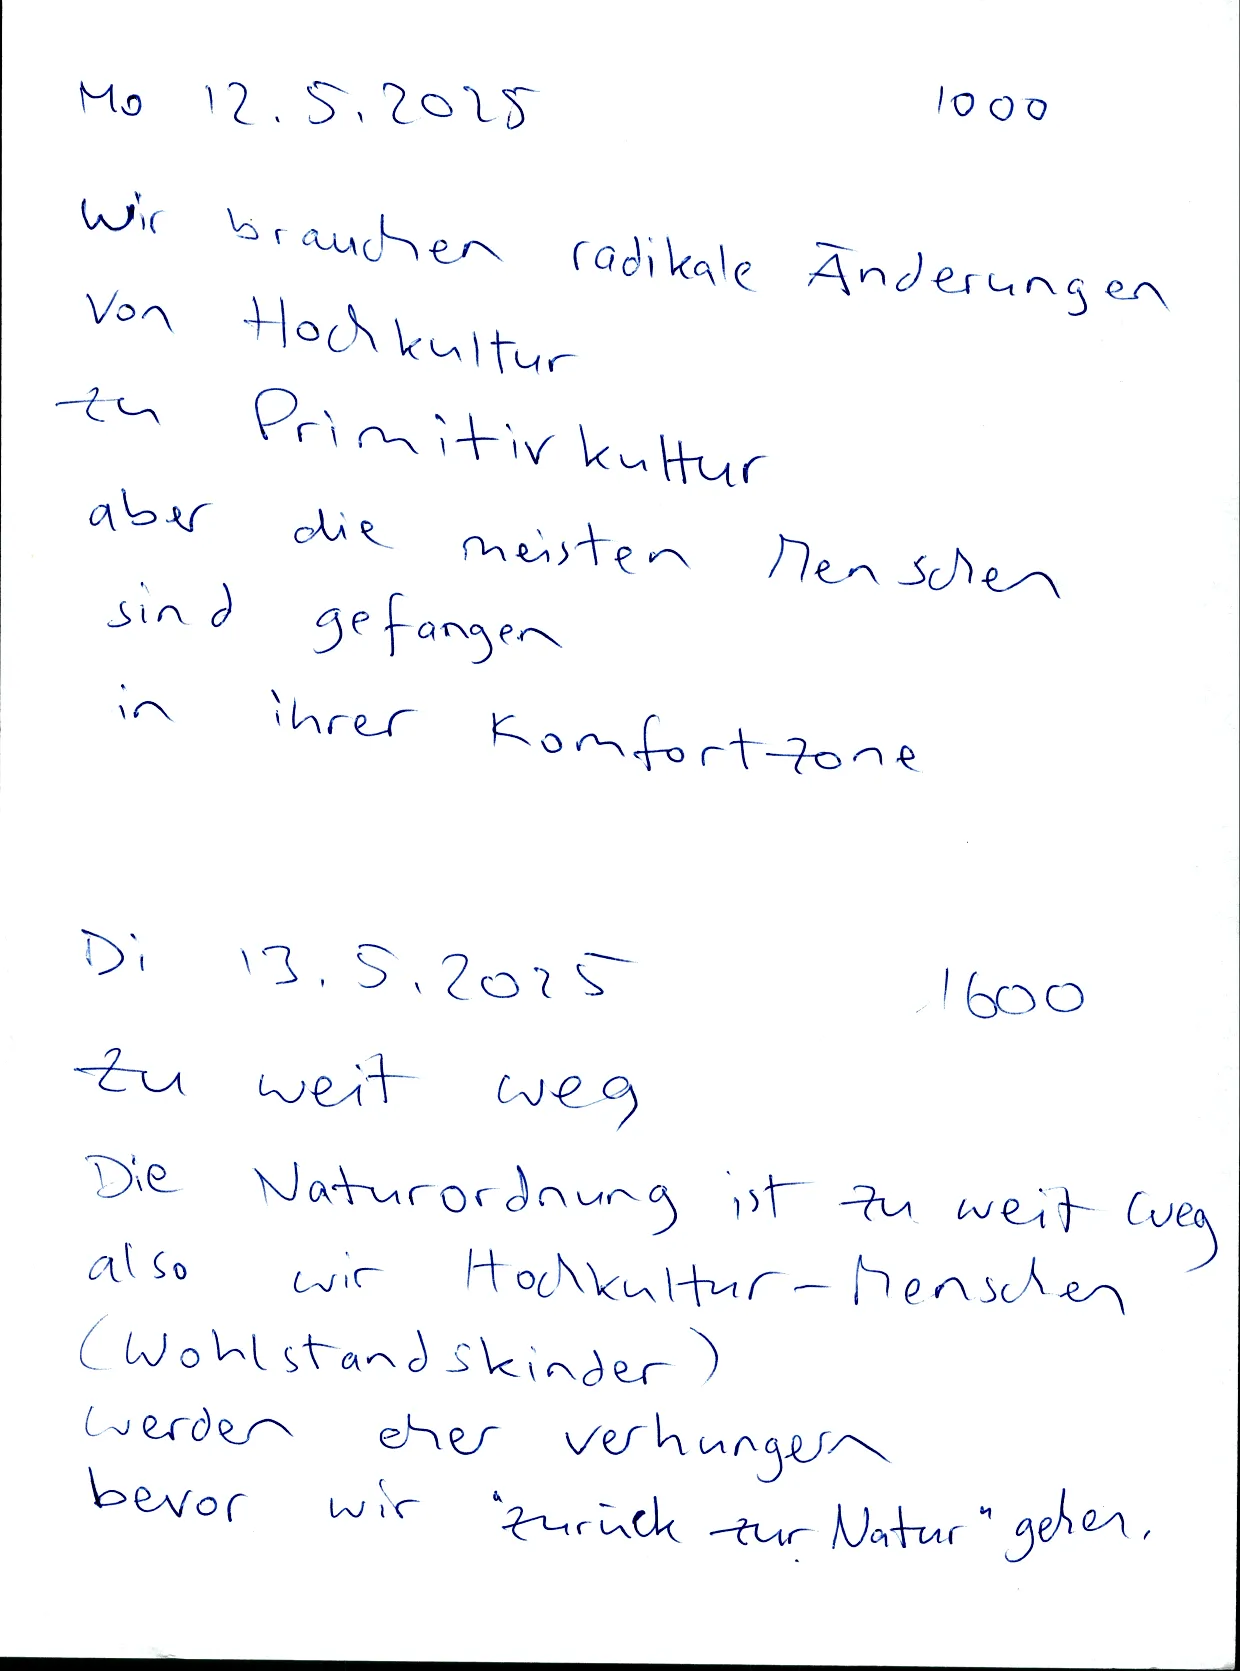 Mo 12.5.2025 1000
Wir brauchen radikale Änderungen
von Hochkultur
zu Primitivkultur
aber die meisten Menschen
sind gefangen
in ihrer Komfortzone
Di 13.5.2025 1600
zu weit weg
Die Naturordnung ist zu weit weg
also wir Hochkultur-Menschen
(Wohlstandskinder)
werden eher verhungern
bevor wir "zurück zur Natur" gehen.